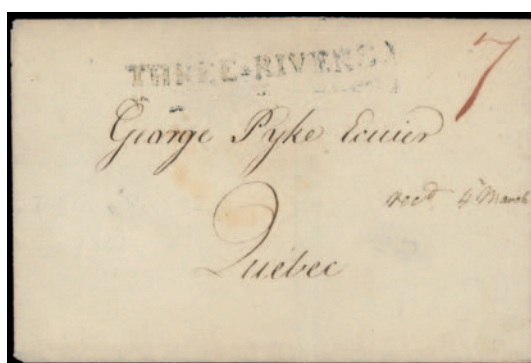 THREE-RIVERS
7
George Pyke Ecuier
recd 4 March
Québec